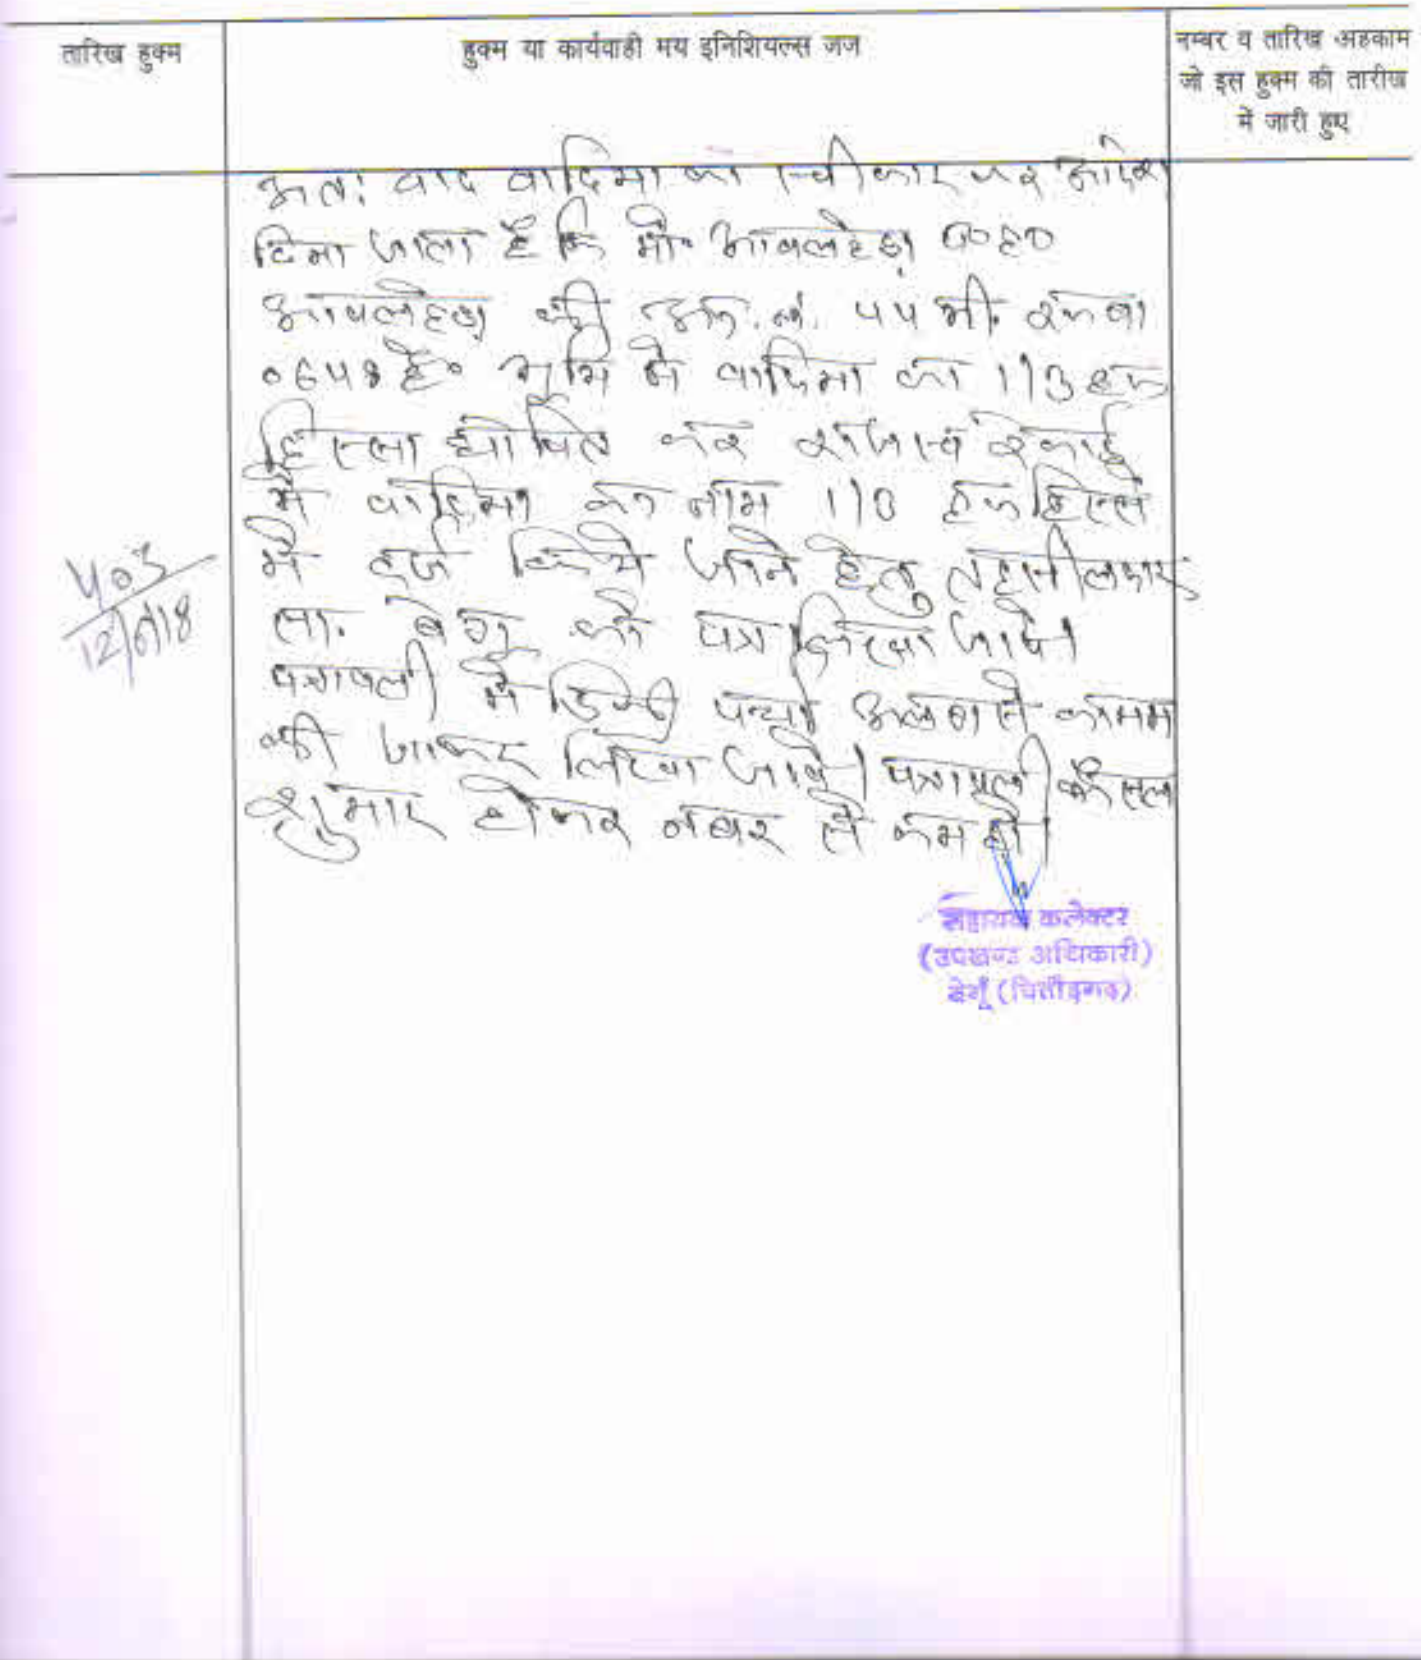 तारिख हुक्म
हुक्म या कार्यवाही मय इनिशियल्स जज
नम्बर व तारिख अहकाम
जो इस हुक्म की तारीख
में जारी हुए
अतः वाद वादिया का स्वीकार कर आदेश
दिया जाता है कि मौ. आवलहेडा प०ह०
आवलहेडा की आ.नं. 44 मी. रकबा
भूमि में वादिया का हक
हिस्सा घोषित कर राजस्व रेकार्ड
में वादिया का नाम हक हिस्से
में दर्ज किये जाने हेतु तहसीलदार
सा. बेगू को पत्र लिखा जावे।
पत्रावली में डिक्री पर्चा अलग से कायम
की जाकर लिखा जावे। पत्रावली फैसल
शुमार होकर नंबर से कम हो।
403
सहायक कलेक्टर
(उपखण्ड अधिकारी)
बेगूँ (चित्तौड़गढ़)